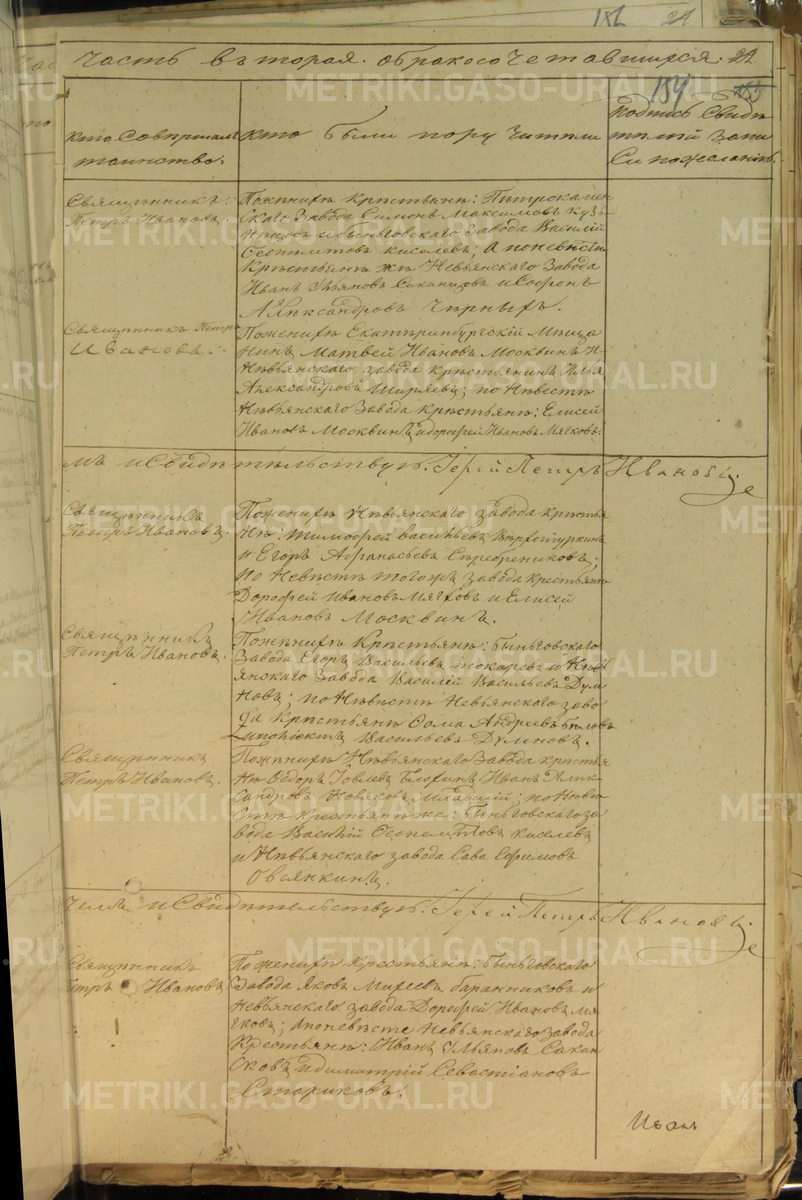 Часть вторая. о бракосочетавшихся. 22
154
Кто совершалъ
таинство.
Кто были поручители
Подпись свидѣ
телей запи
си по желанію.
Священникъ
Петръ Ивановъ.
По женихѣ крестьяне: Петрокамен
скаго завода Симонъ Максимовъ Куз
нецовъ и Быньговскаго завода Василій
Киселевъ; а по невѣстѣ
крестьяне же Невьянскаго завода
Иванъ Ульяновъ и Софонъ
Александровъ Черныхъ.
Священникъ Петръ
Ивановъ.
По женихѣ Екатеринбургскій мѣща
нинъ Матвей Ивановъ Москвинъ и
Невьянскаго завода крестьянинъ Илья
Александровъ Ширяевъ; по невестѣ
Невьянскаго завода крестьяне: Елисей
Ивановъ Москвинъ и Дорофей Ивановъ Мягковъ.
мъ и свидѣтельствуетъ: Іерей Петръ Ивановъ
Священникъ
Петръ Ивановъ.
По женихѣ Невьянскаго завода крестья
не: Тимофей Васильевъ Верхотуркинъ
и Егоръ Афанасьевъ Серебрениковъ;
по невѣстѣ тогожъ завода крестьяне
Дорофей Ивановъ Мягковъ и Елисей
Ивановъ Москвинъ.
Священникъ
Петръ Ивановъ.
По женихѣ крестьяне: Быньговскаго
завода Егоръ Васильевъ Токаревъ и Невь
янскаго завода Василій Васильевъ Дум
новъ; по невѣстѣ Невьянскаго заво
да крестьяне Фома Андреевъ Бѣловъ
Васильевъ Думновъ.
Священникъ
Петръ Ивановъ.
По женихѣ Невьянскаго завода крестья
не Федоръ Іовлевъ Иванъ Алек
сандровъ Новаковъ младшій; по невѣ
стѣ крестьяне же: Быньговскаго за
вода Василій Киселевъ
и Невьянскаго завода Сава Ефимовъ
Овсянкинъ.
и свидѣтельствуетъ: Іерей Петръ Ивановъ
Священникъ
Петръ Ивановъ
По женихѣ крестьяне: Быньговскаго
завода Яковъ Михеевъ Баранниковъ и
Невьянскаго завода Дорофей Ивановъ Мя
гковъ; а по невѣсте Невьянскаго завода
крестьяне: Иванъ Ульяновъ
и Димитрій Севастіановъ
Стариковъ.
METRIKI.GASO-URAL.RU